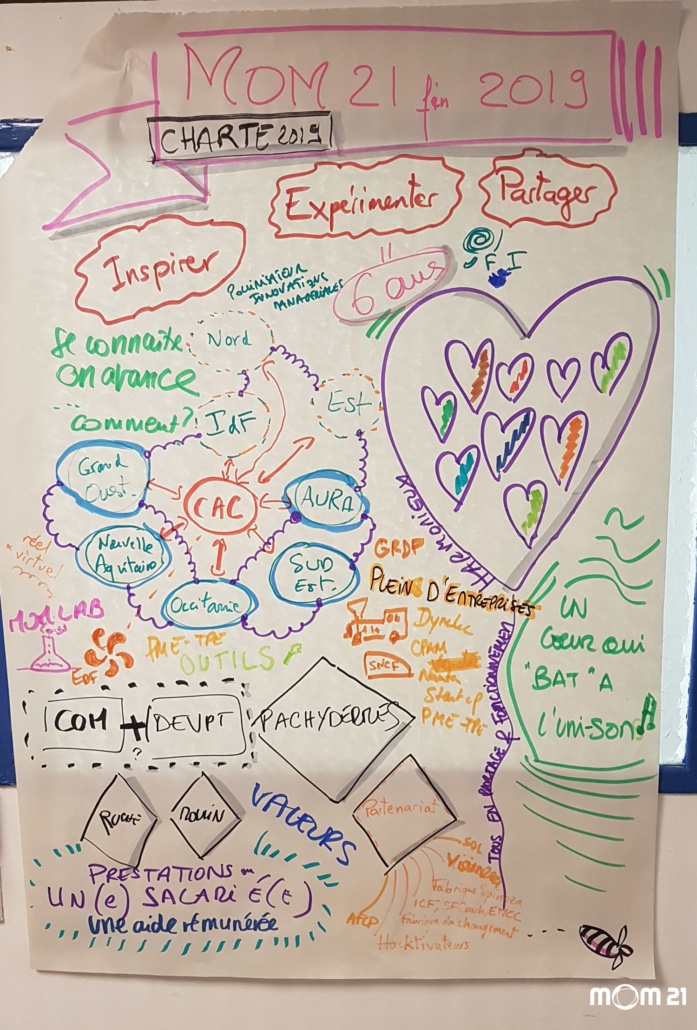 MOM 21 fin 2019
CHARTE 2019
Inspirer
Expérimenter
Partager
=
6 ans
F I
POLLINISATEUR
INNOVATIONS
MANAGÉRIALES
Se connaître
on avance
... comment?
Nord
IdF
Est
Grand
Ouest.
CAC
AURA
Nouvelle
Aquitaine
Occitanie
SUD
Est.
réel
virtuel
MOM LAB
EDF
PME-TPE
OUTILS
GRDF
PLEIN D'ENTREPRISES
CPAM
SNCF
Start up
PME-TPE
HARMONIEUX
TOUS EN PARTAGE & FONCTIONNEMENT
UN
Cœur qui
"BAT" A
l'uni-son
COM + DEVPT
?
PACHYDERMES
RUCHE
VALEURS
Partenariat
SOL
AFCP
Fabrique du changement
Hacktivateurs
PRESTATIONS
UN(e) SALARIÉ(E)
une aide rémunérée
MOM 21